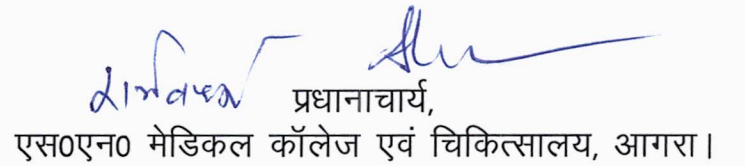 प्रधानाचार्य,
एस0एन0 मेडिकल कॉलेज एवं चिकित्सालय, आगरा।